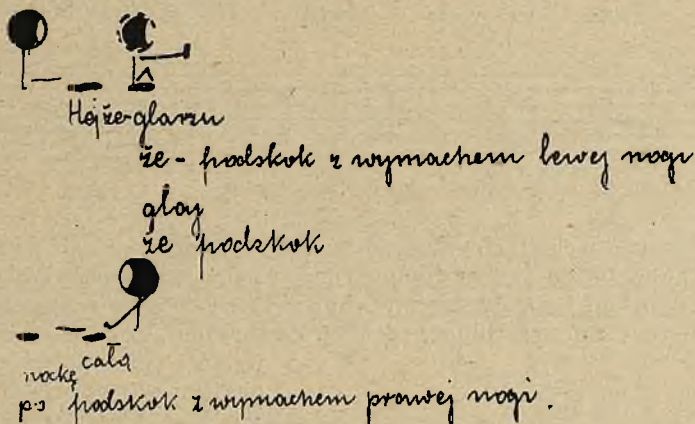 Hejże-glarzu
że - podskok z wymachem lewej nogi
glay
że podskok
nockę całą
ps podskok z wymachem prawej nogi.